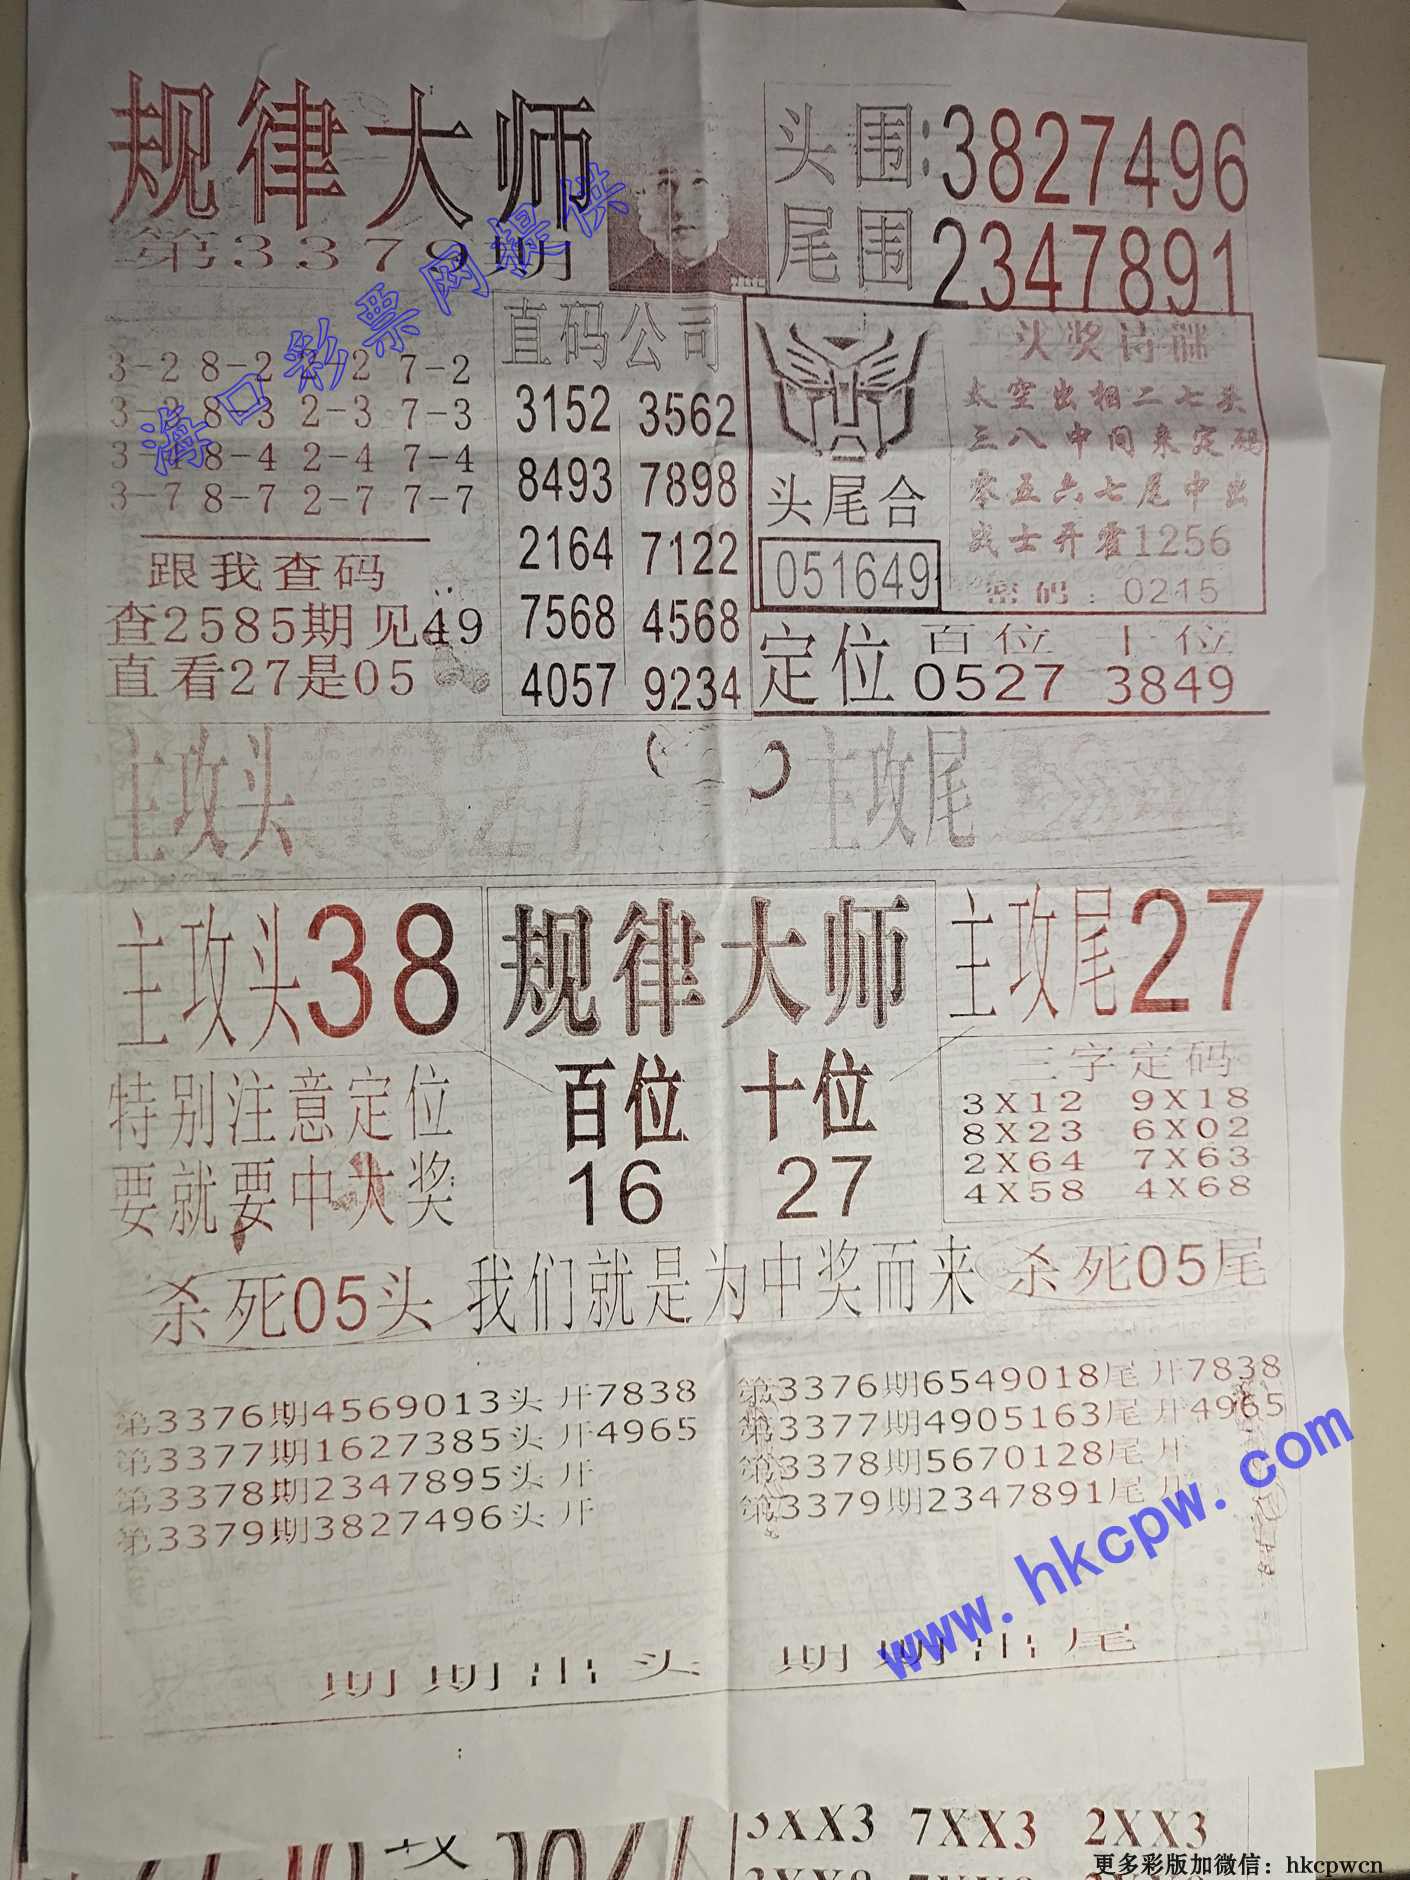 规律大师
第3379期
头围:3827496
尾围2347891
海口彩票网提供
3-2 8-2 2-2 7-2
3-3 8-3 2-3 7-3
3-4 8-4 2-4 7-4
3-7 8-7 2-7 7-7
跟我查码
查2585期见49
直看27是05
直码公司
3152 3562
8493 7898
2164 7122
7568 4568
4057 9234
头尾合
051649
头奖诗谜
太空出相二七头
三八中间来定码
零五六七尾中出
战士开霍1256
密码:0215
定位 百位 十位
0527 3849
主攻头 827
主攻尾
主攻头38
规律大师
主攻尾27
特别注意定位
要就要中大奖
百位 十位
16 27
三字定码
3X12 9X18
8X23 6X02
2X64 7X63
4X58 4X68
杀死05头 我们就是为中奖而来 杀死05尾
第3376期4569013头开7838
第3377期1627385头开4965
第3378期2347895头开
第3379期3827496头开
第3376期6549018尾开7838
第3377期4905163尾开4965
第3378期5670128尾开
第3379期2347891尾开
www.hkcpw.com
期期出头 期期出尾
3XX3 7XX3 2XX3
更多彩版加微信：hkcpwcn